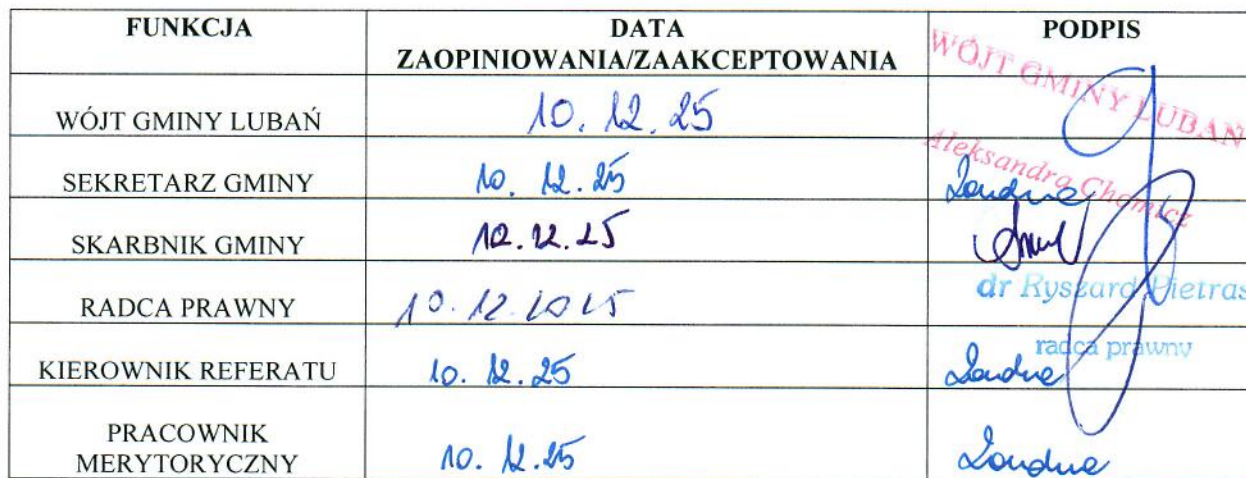 FUNKCJA DATA PODPIS
ZAOPINIOWANIA/ZAAKCEPTOWANIA
WÓJT GMINY LUBAŃ 10.12.25 WÓJT GMINY LUBAŃ
Aleksandra Chomicz
SEKRETARZ GMINY 10.12.25
SKARBNIK GMINY 10.12.25
RADCA PRAWNY 10.12.2025 dr Ryszard Pietras
radca prawny
KIEROWNIK REFERATU 10.12.25
PRACOWNIK
MERYTORYCZNY 10.12.25